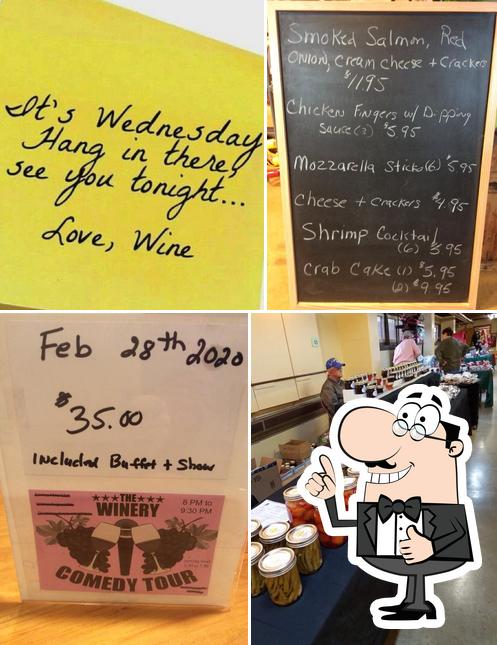 It's Wednesday
Hang in there,
see you tonight...
Love, Wine
Smoked Salmon, Red
Onion, Cream Cheese + Crackers
$11.95
Chicken Fingers w/ Dipping
Sauce (3) $5.95
Mozzarella Sticks (6) $5.95
Cheese + Crackers $4.95
Shrimp Cocktail
(6) 5.95
Crab Cake (1) $5.95
(2) $9.95
Feb 28th 2020
$35.00
Included Buffet + Show
THE
WINERY
8 PM to
9:30 PM
COMEDY TOUR